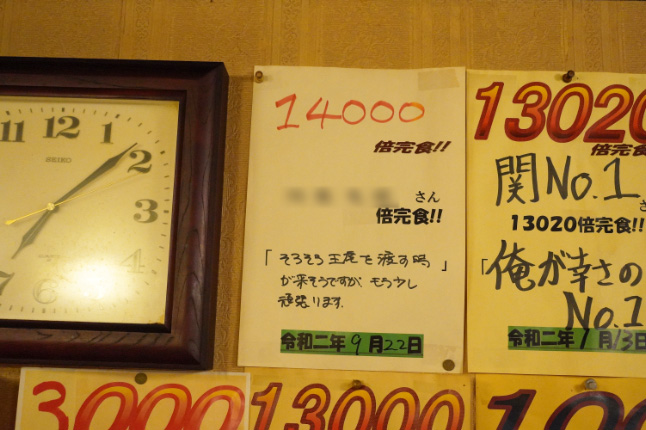 11 12 1
2
3
7
SEIKO
14000
倍完食!!
さん
倍完食!!
「そろそろ王尾を渡す時」
が来そうですが、もう少し
頑張ります。
令和二年 9月22日
13020
倍完食!!
関No.1
13020倍完食!!
「俺が幸さの
No.1
令和二年 1月13日
3000
13000